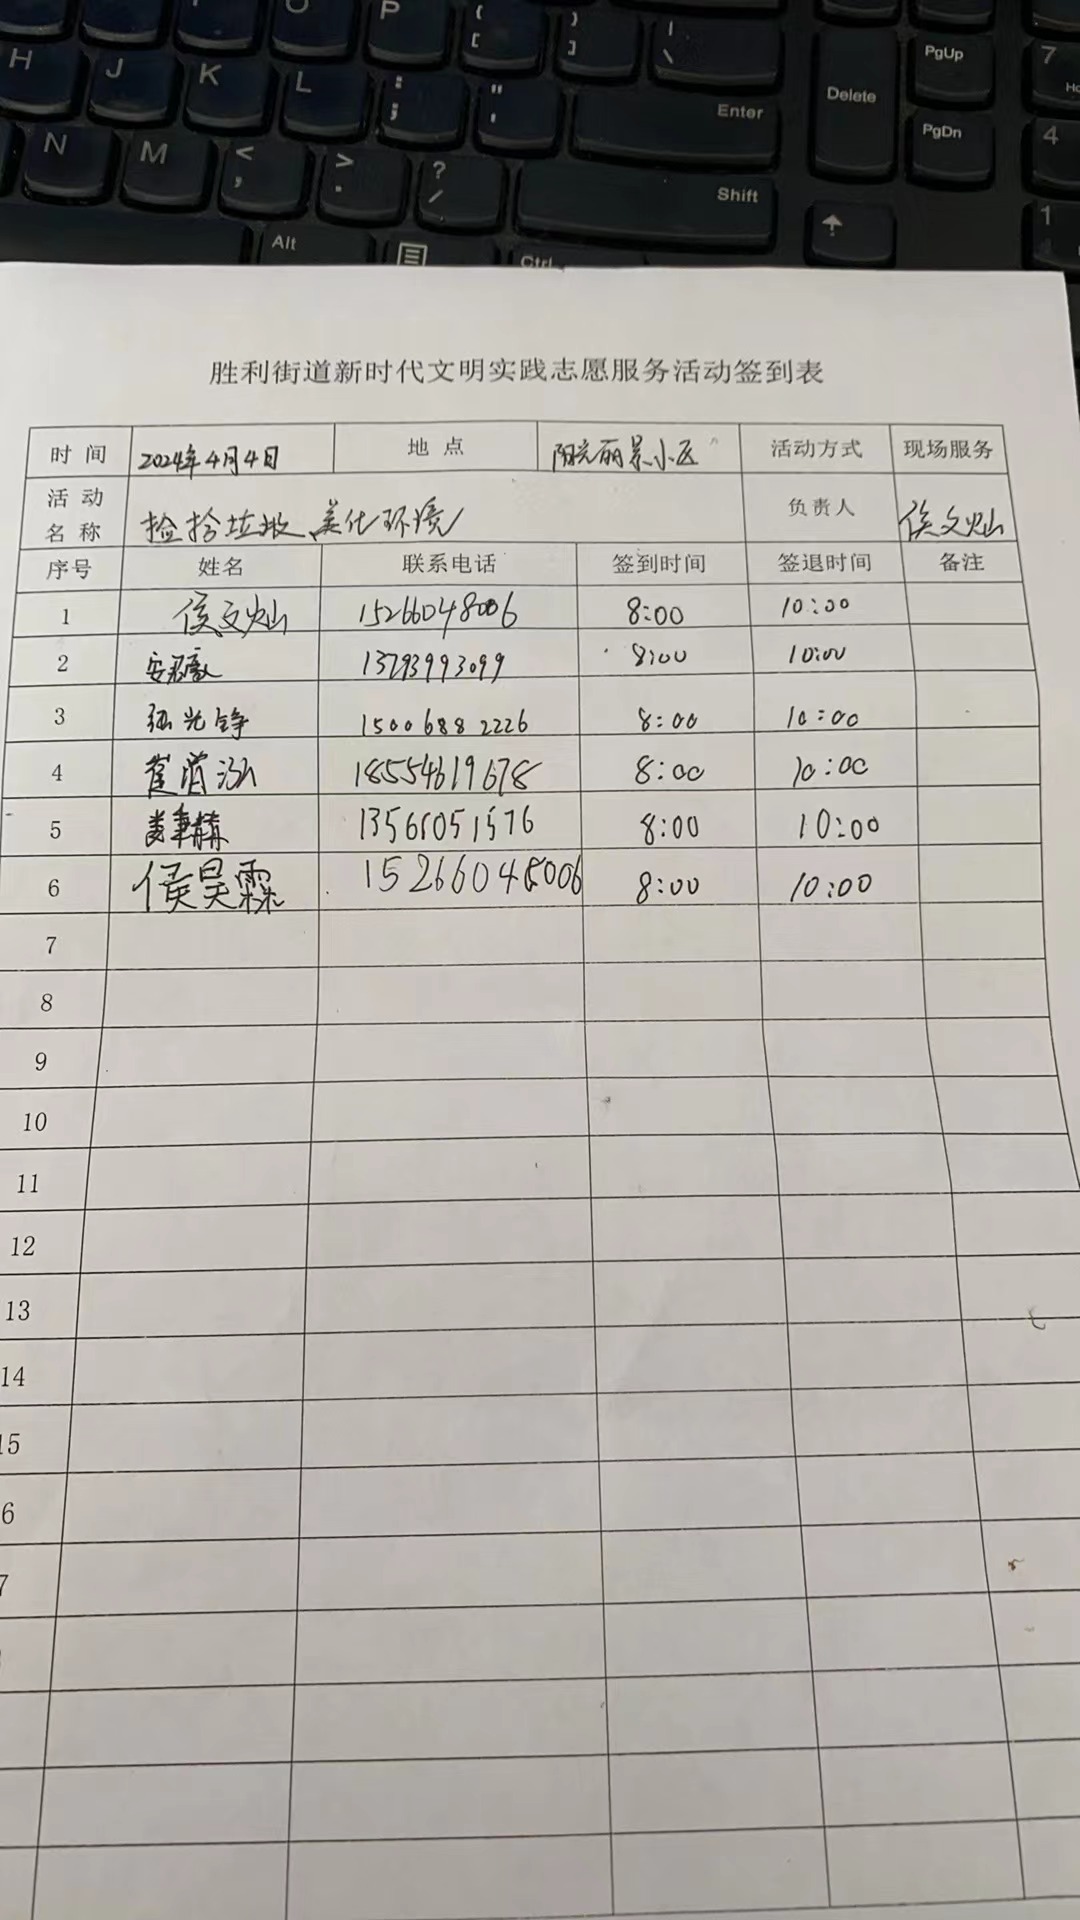 O P { [ } ] | \
H J K L : ; " ' Enter Delete PgUp 7
N M < , > . ? / Shift PgDn 4
Alt Ctrl 1
胜利街道新时代文明实践志愿服务活动签到表
时间 2024年4月4日 地点 阳光丽景小区 活动方式 现场服务
活动名称 捡拾垃圾、美化环境 负责人 侯文灿
序号 姓名 联系电话 签到时间 签退时间 备注
1 侯文灿 15266048006 8:00 10:00
2 13793993099 8:00 10:00
3 15006882226 8:00 10:00
4 18554619678 8:00 10:00
5 8:00 10:00
6 侯昊霖 8:00 10:00
7
8
9
10
11
12
13
14
15
6
7